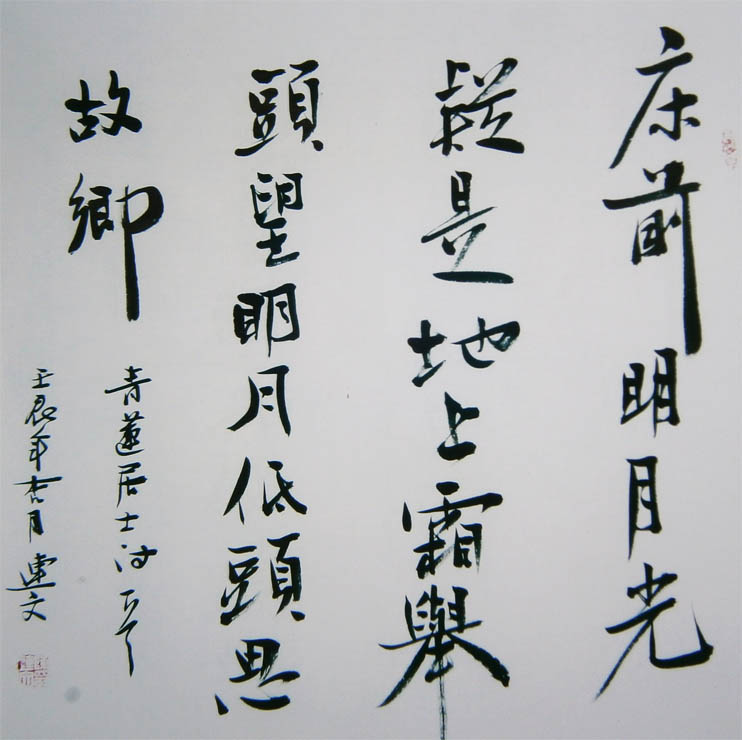 床前明月光
疑是地上霜舉
頭望明月低頭思
故鄉
青蓮居士詩
壬辰年杏月連文